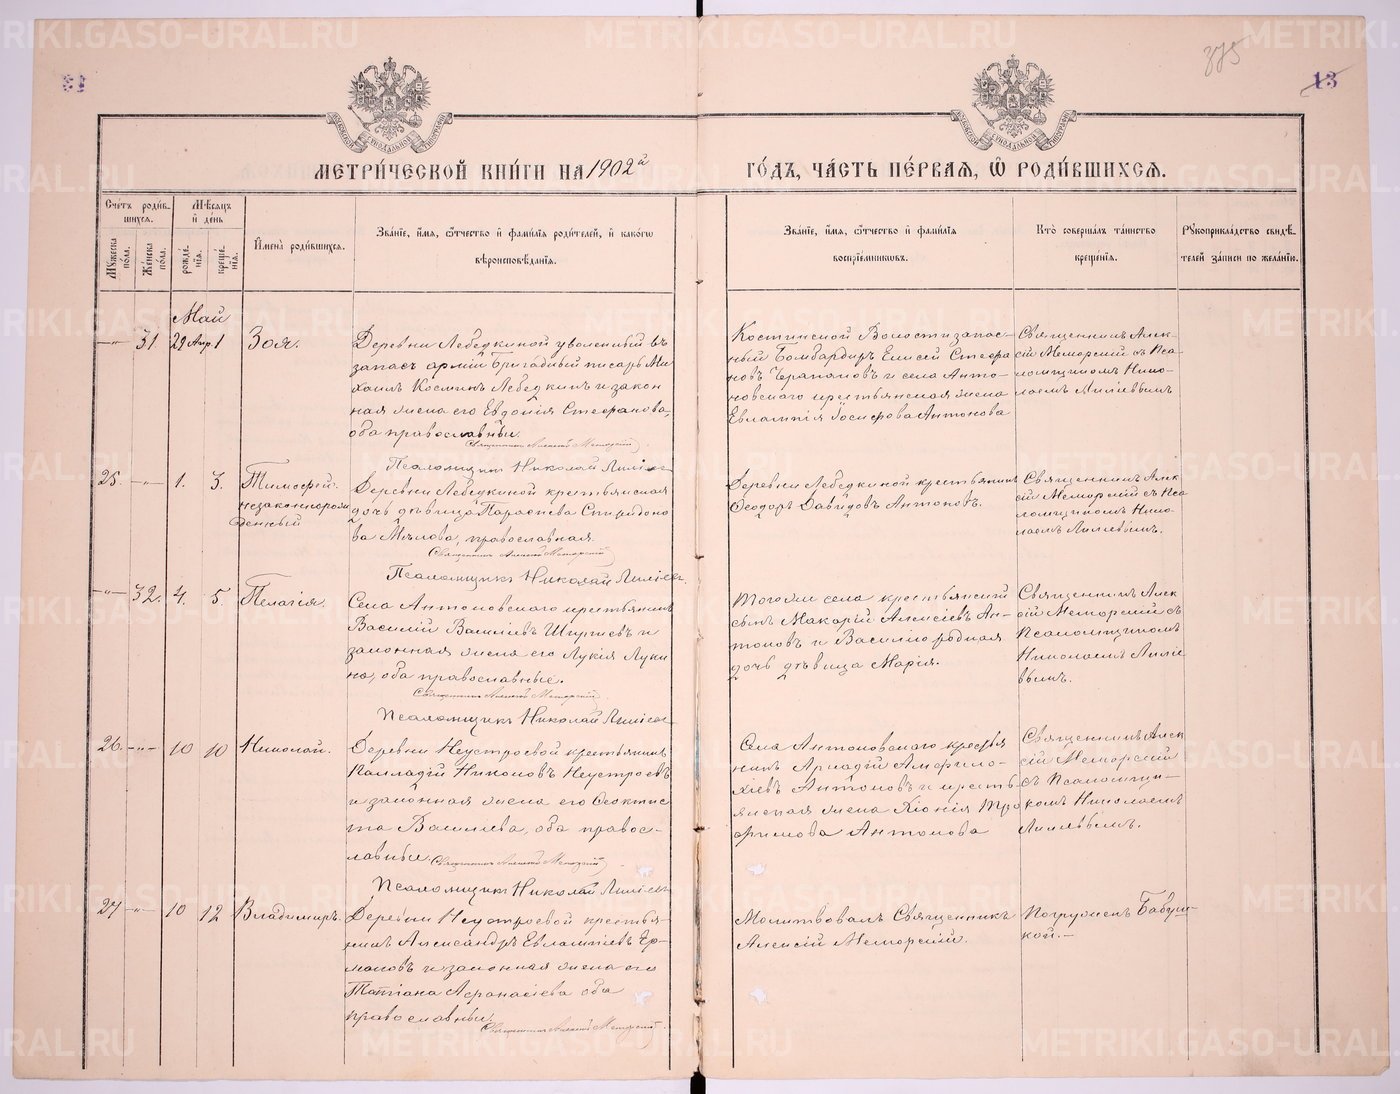 METRIKI.GASO-URAL.RU
375
13
МЕТРИ́ЧЕСКОЙ КНИ́ГИ НА 1902й ГО́ДЪ, ЧА́СТЬ ПЕ́РВАѦ, Ѽ РОДИ́ВШИХСѦ.
Сче́тъ роди́вшихсѧ.
Мꙋжеска по́ла.
Же́нска по́ла.
Мѣ́сѧцъ и҆ де́нь
рожде́нїѧ.
креще́нїѧ.
И҆мена̀ роди́вшихсѧ.
Зва́нїе, и҆́мѧ, ѻ҆́тчество и҆ фами́лїѧ роди́телей, и҆ како́гѡ
вѣроисповѣ́данїѧ.
Зва́нїе, и҆́мѧ, ѻ҆́тчество и҆ фами́лїѧ
воспрїе́мниковъ.
Кто̀ соверша́лъ та́инство
креще́нїѧ.
Рꙋкоприкла́дство свидѣ́телей за́писи по жела́нїю.
Май
-„- 31. 29 Апр. 1 Зоя.
Деревни Лебедкиной уволенный въ
запасъ арміи Бригадный писарь Ми-
хаилъ Космин Лебедкинъ и закон
ная жена его Евдокія Стефанова,
оба православны.
Священникъ Алексѣй Меморскій
Псаломщикъ Николай Лиліевъ
Костинской Волости запас-
ный Бомбардиръ Елисей Стефа
новъ Черепановъ и села Анто-
новскаго крестьянская жена
Евлампія Іосифова Антонова
Священникъ Алек-
сій Меморскій съ Пса-
ломщикомъ Нико-
лаемъ Лиліевымъ
25. -„- 1. 3. Тимофей.
незаконнорож
денный
Деревни Лебедкиной крестьянская
дочь дѣвица Параскева Спиридоно
ва Мѣлкова, православная.
Священникъ Алексѣй Меморскій
Псаломщикъ Николай Лиліевъ.
Деревни Лебедкиной крестьянинъ
Ѳеодоръ Давидовъ Антоновъ.
Священникъ Алек
сій Меморскій съ Пса
ломщикомъ Нико-
лаемъ Лиліевымъ.
-„- 32. 4. 5. Пелагія.
Села Антоновскаго крестьянинъ
Василій Василіевъ Шкиревъ и
законная жена его Лукія Луки
на, оба православные.
Священникъ Алексѣй Меморскій
Псаломщикъ Николай Лиліевъ
Того же села крестьянскій
сынъ Макарій Алексіевъ Ан-
тоновъ и Василію родная
дочь дѣвица Марія.
Священникъ Алек
сій Меморскій съ
Псаломщикомъ
Николаемъ Лиліе
вымъ.
26. -„- 10 10 Николай.
Деревни Неустроевой крестьянинъ
Палладій Никоновъ Неустроевъ
и законная жена его Ѳеоктис
та Василіева, оба правос-
лавные.
Священникъ Алексѣй Меморскій
Псаломщикъ Николай Лиліевъ
Села Антоновскаго крестья
нинъ Аркадій Амфило-
хіевъ Антоновъ и кресть-
янская жена Хіонія Тро
фимова Антонова
Священникъ Алек
сій Меморскій
съ Псаломщи-
комъ Николаемъ
Лиліевымъ.
27 -„- 10 12 Владимиръ.
Деревни Неустроевой крестья-
нинъ Александръ Евлампіевъ Ер-
маковъ и законная жена его
Татіана Аѳанасіева оба
православны.
Священникъ Алексѣй Меморскій
Молитвовалъ Священникъ
Алексій Меморскій.
Погруженъ Бабуш-
кой.-